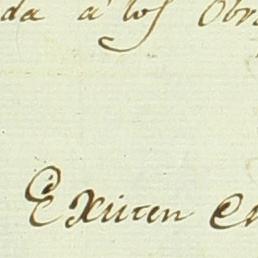 da á los Obr
Existen en